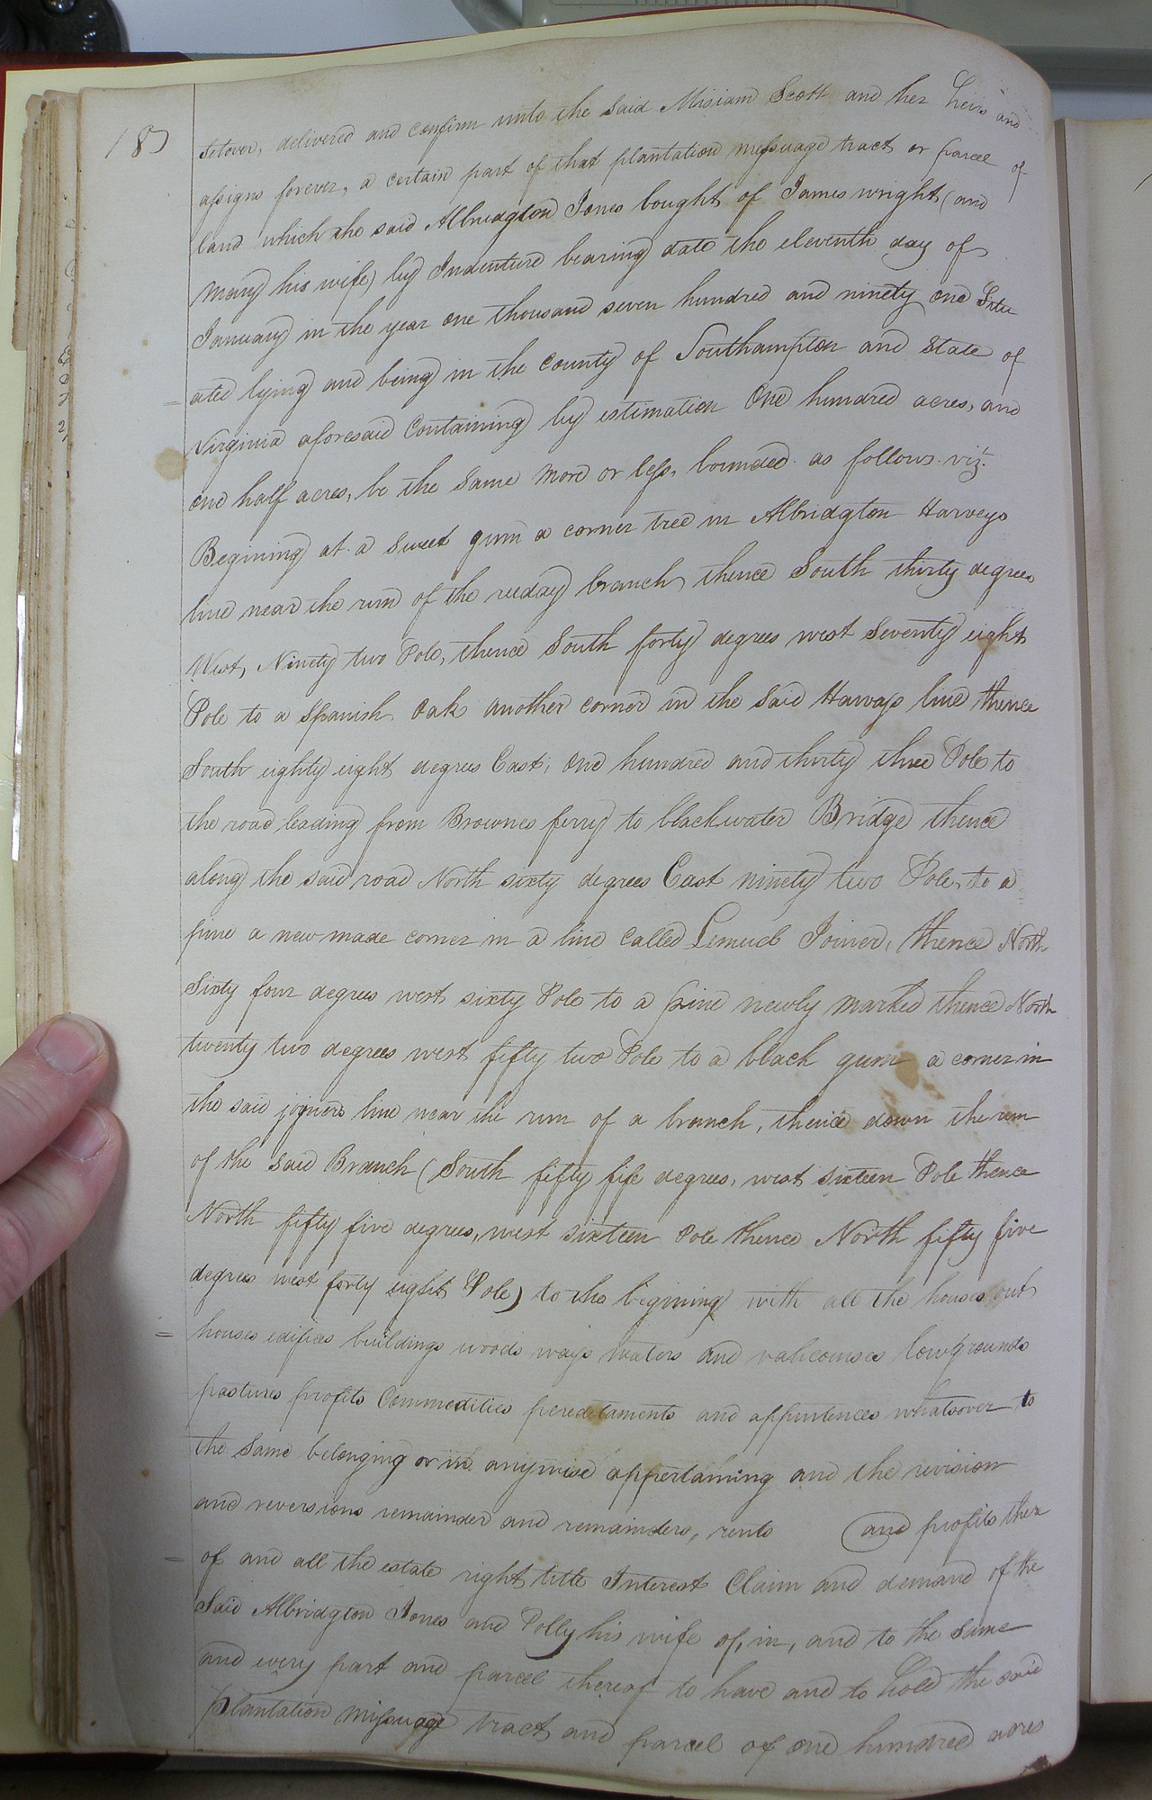 187
setover, delivered and confirm unto the said Misiam Scott and her heirs and
assigns forever, a certain part of that plantation messuage tract or parcel of
land which the said Albridgton Jones bought of James wright (and
Mary his wife) by Indenture bearing date the eleventh day of
January in the year one thousand seven hundred and ninety one Situ
ated lying and being in the county of Southampton and State of
Virginia aforesaid Containing by estimation One hundred acres, and
one half acres, be the Same More or less, bounded as follows viz.
Begining at a Sweet gum a corner tree in Albridgton Harveys
line near the run of the reeday branch thence South thirty degrees
West, Ninety two Pole, thence South forty degrees west Seventy eight
Pole to a Spanish Oak another corner in the Said Harvays line thence
South eighty eight degrees East, one hundred and thirty three Pole to
the road leading from Brownes ferry to blackwater Bridge thence
along the said road North sixty degrees East ninety two Pole, to a
pine a new made corner in a line called Lemuel Joiners, thence North
Sixty four degrees west sixty Pole to a pine newly marked thence North
twenty two degrees west fifty two Pole to a black gum a corner in
the said joyners line near the run of a branch, thence down the run
of the said Branch (South fifty fife degrees, west sixteen Pole thence
North fifty five degrees, west sixteen Pole thence North fifty five
degrees west forty eight Pole) to the begining with all the houses out
houses edifices buildings woods ways waters and watecourses lowgrounds
pastures profits Commodities peredetaments and appurtences whatsoever to
the same belonging or in anywise appertaining and the revision
and reversions remainder and remainders, rents and profits there
of and all the estate right title Interest Claim and demand of the
Said Albridgton Jones and Polly his wife of, in, and to the same
and every part and parcel thereof to have and to hold the said
plantation Misuage tract and parcel of one hundred acres